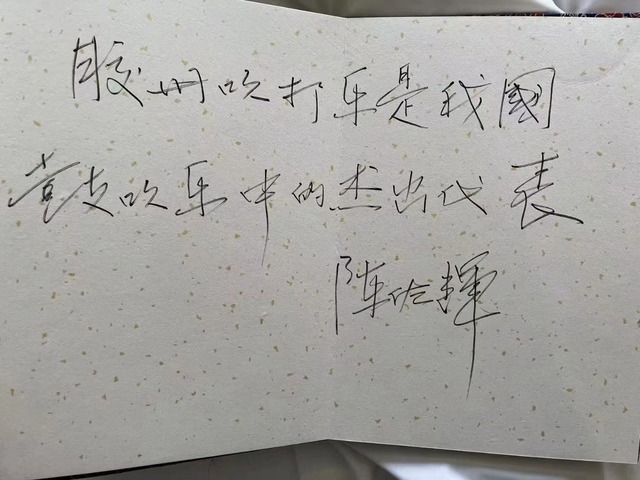 胶州吹打乐是我國
鼓吹乐中的杰出代表
陈佐輝